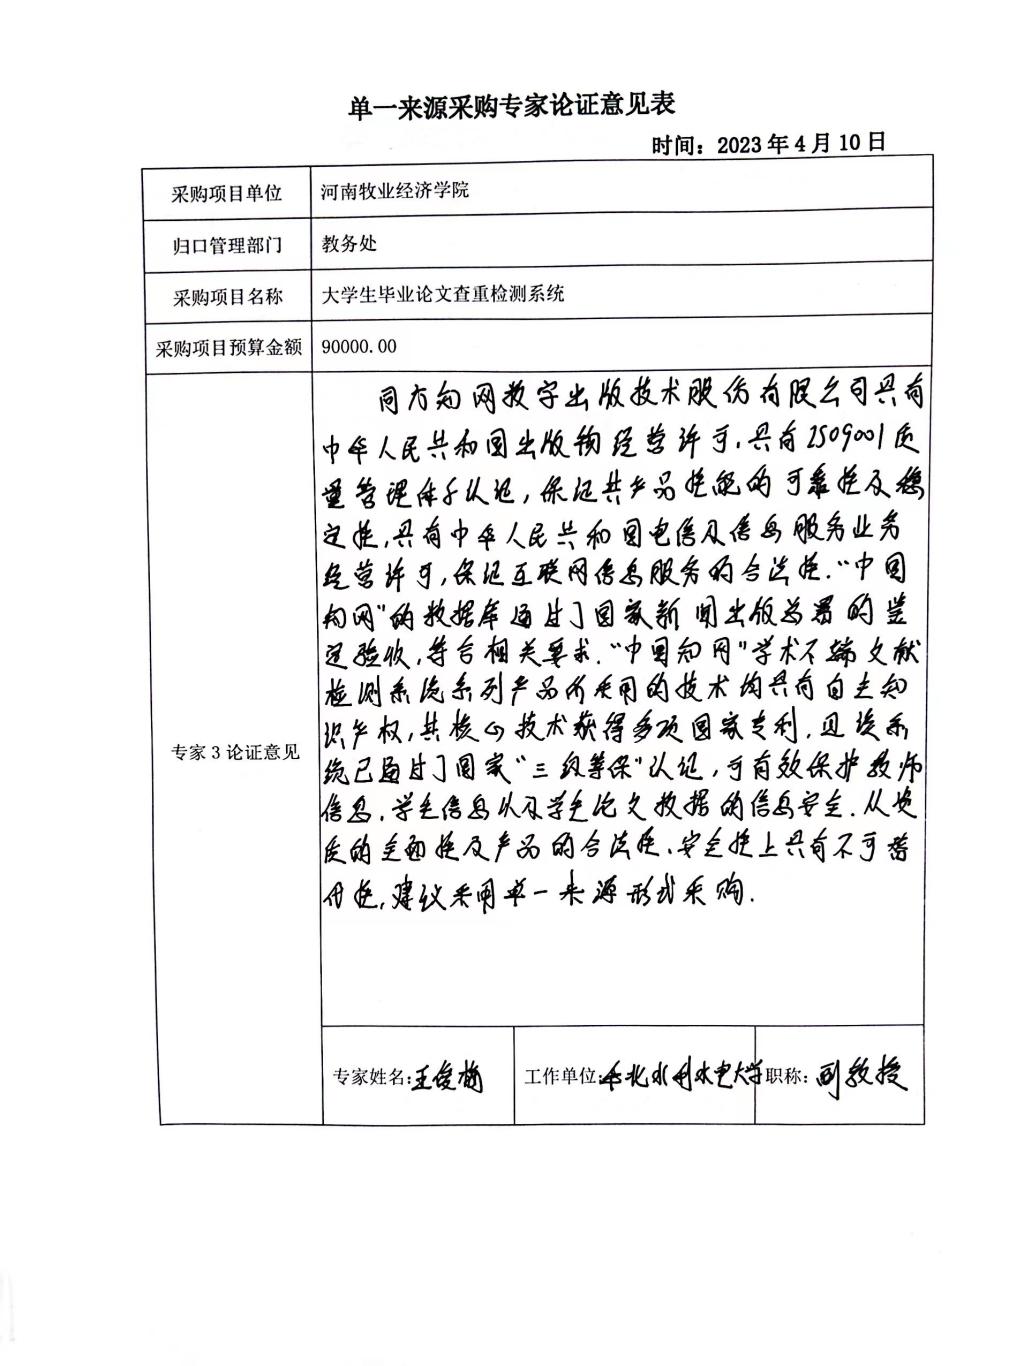 单一来源采购专家论证意见表
时间：2023年4月10日
采购项目单位 河南牧业经济学院
归口管理部门 教务处
采购项目名称 大学生毕业论文查重检测系统
采购项目预算金额 90000.00
专家3论证意见
同方知网数字出版技术股份有限公司具有
中华人民共和国出版物经营许可，具有ISO9001质
量管理体系认证，保证其产品性能的可靠性及稳
定性，具有中华人民共和国电信及信息服务业务
经营许可，保证互联网信息服务的合法性．“中国
知网”的数据库通过了国家新闻出版总署的鉴
定验收，符合相关要求．“中国知网”学术不端文献
检测系统系列产品所采用的技术均具有自主知
识产权，其核心技术获得多项国家专利，且该系
统已通过了国家“三级等保”认证，可有效保护教师
信息，学生信息以及学生论文数据的信息安全．从资
质的全面性及产品的合法性，安全性上具有不可替
代性，建议采用单一来源形式采购．
专家姓名：王俊梅 工作单位：华北水利水电大学 职称：副教授